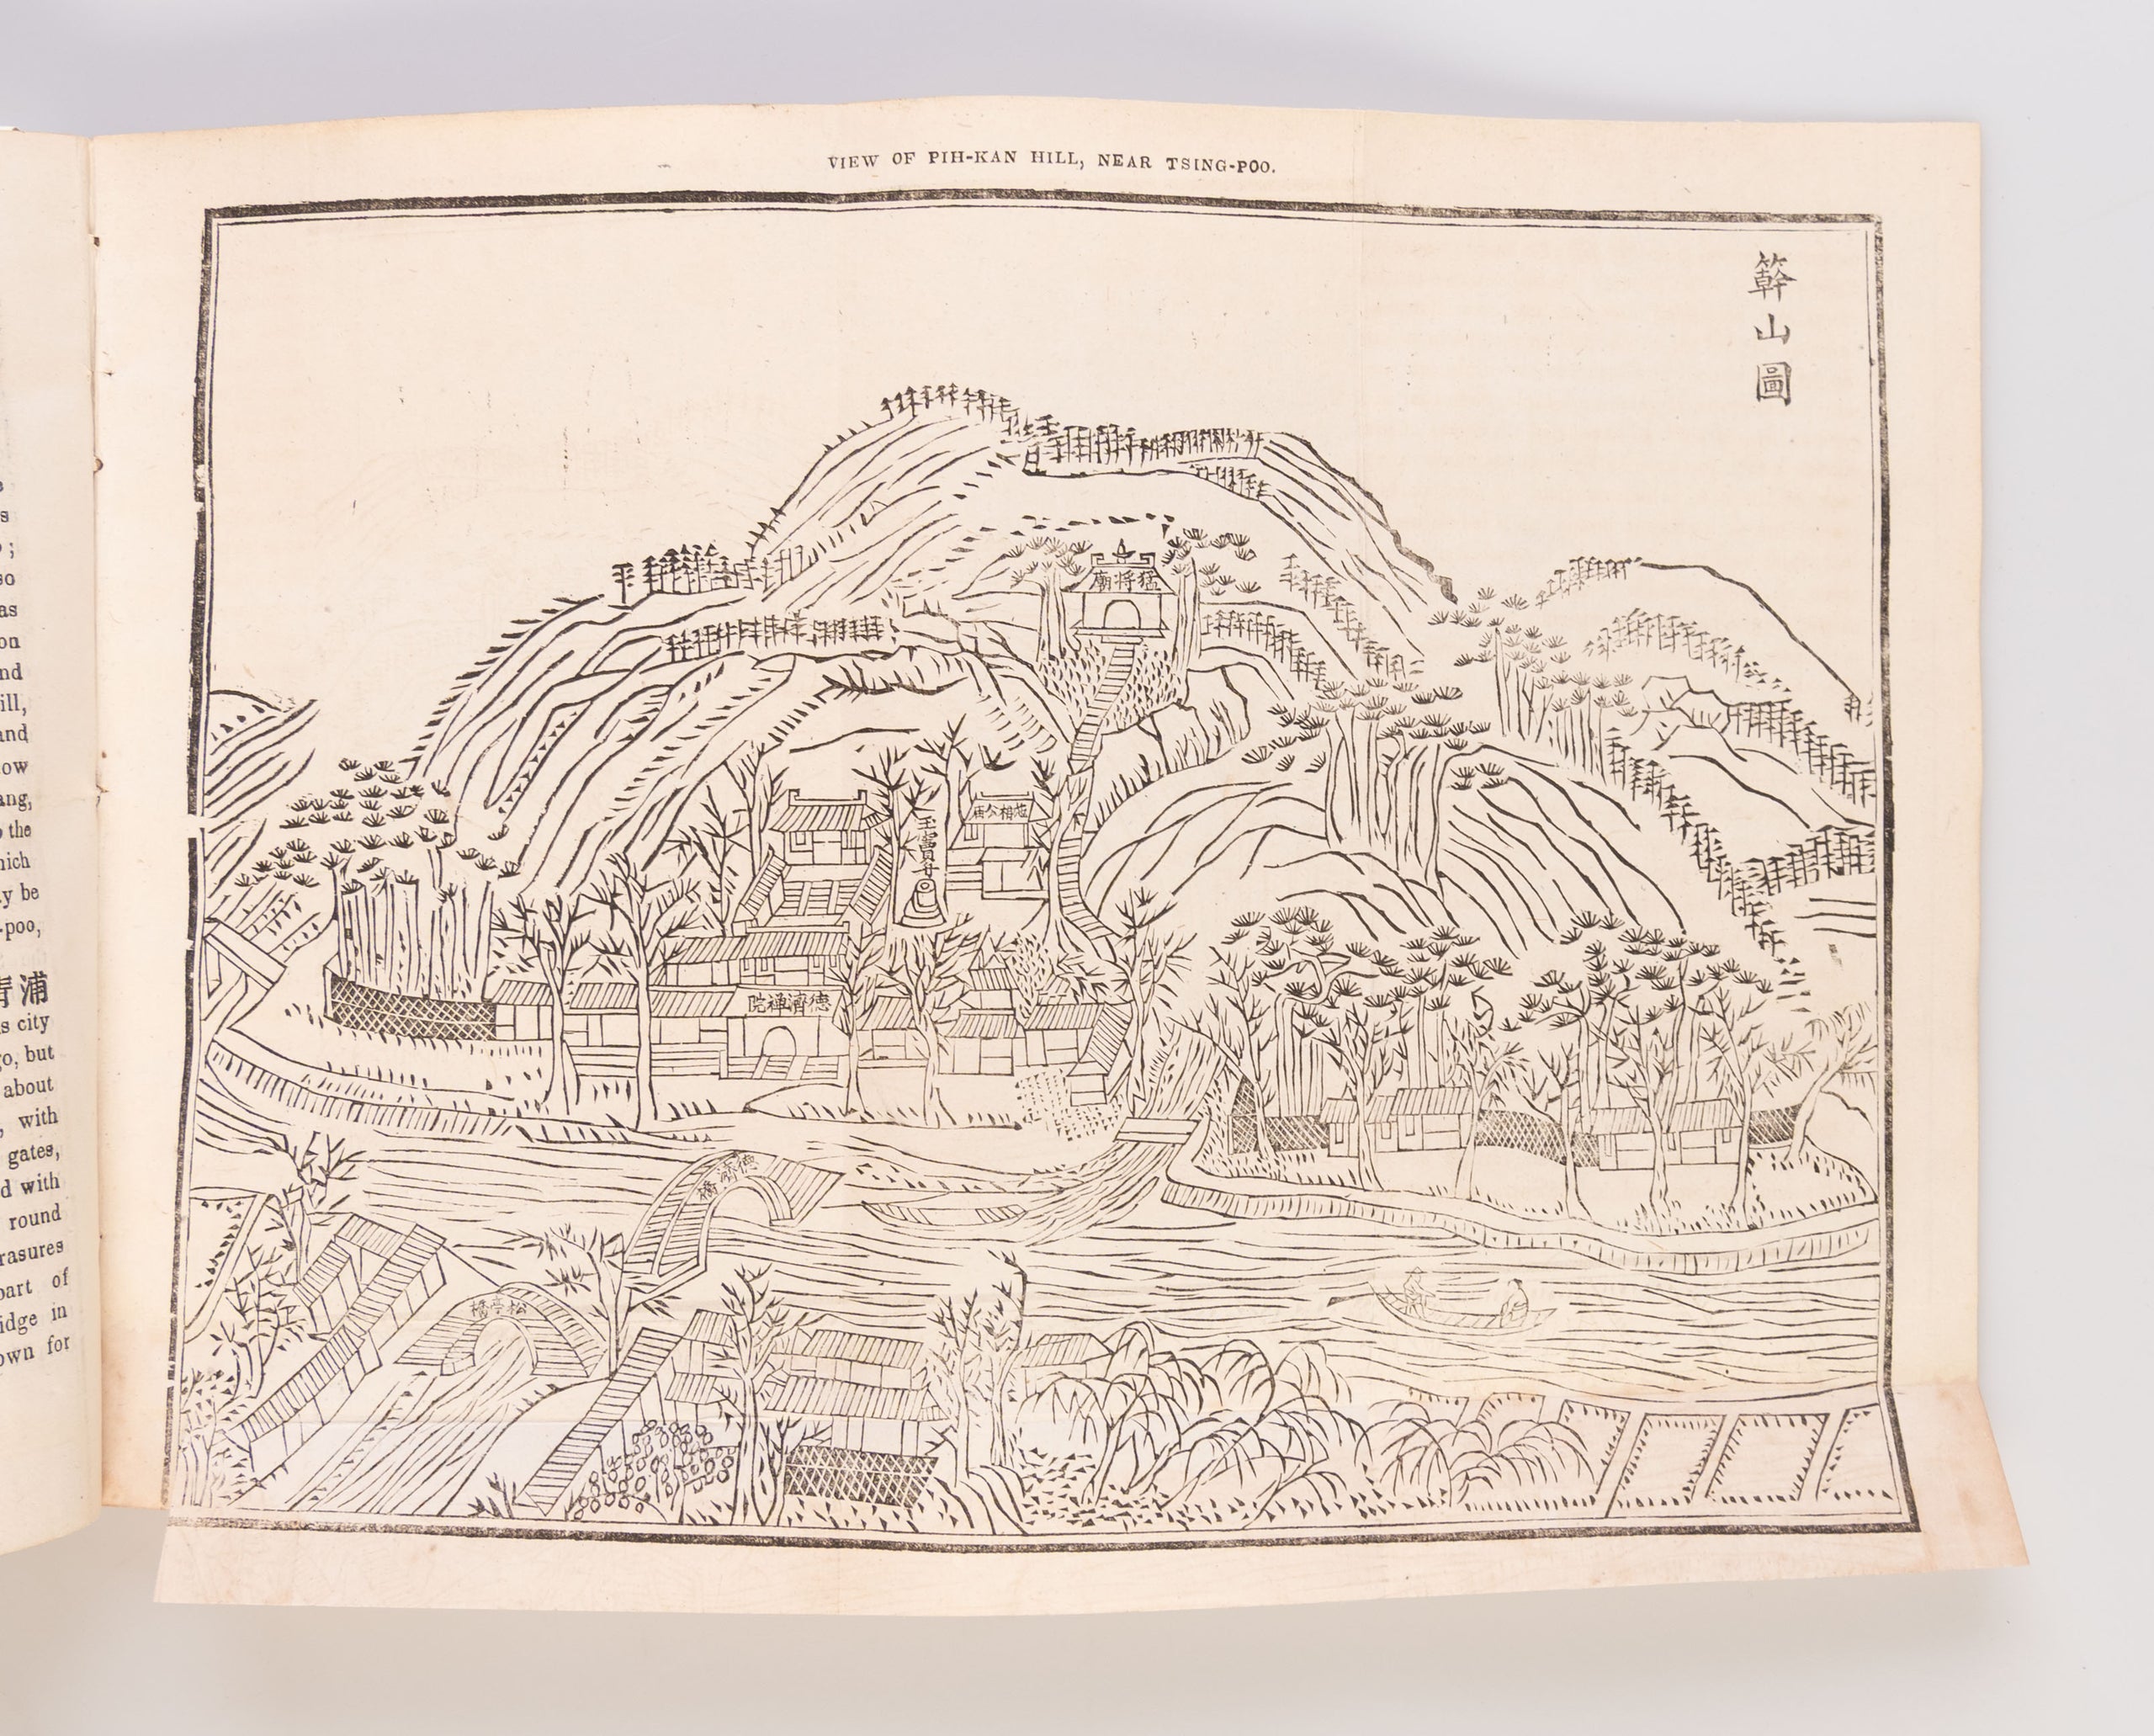 VIEW OF PIH-KAN HILL, NEAR TSING-POO.
簳山圖
猛將廟
德濟禪院
德濟橋
松亭橋
so
as
on
nd
ill,
and
ow
ang,
the
hich
y be
-poo,
青浦
s city
o, but
about
, with
gates,
d with
round
rasures
part of
idge in
own for